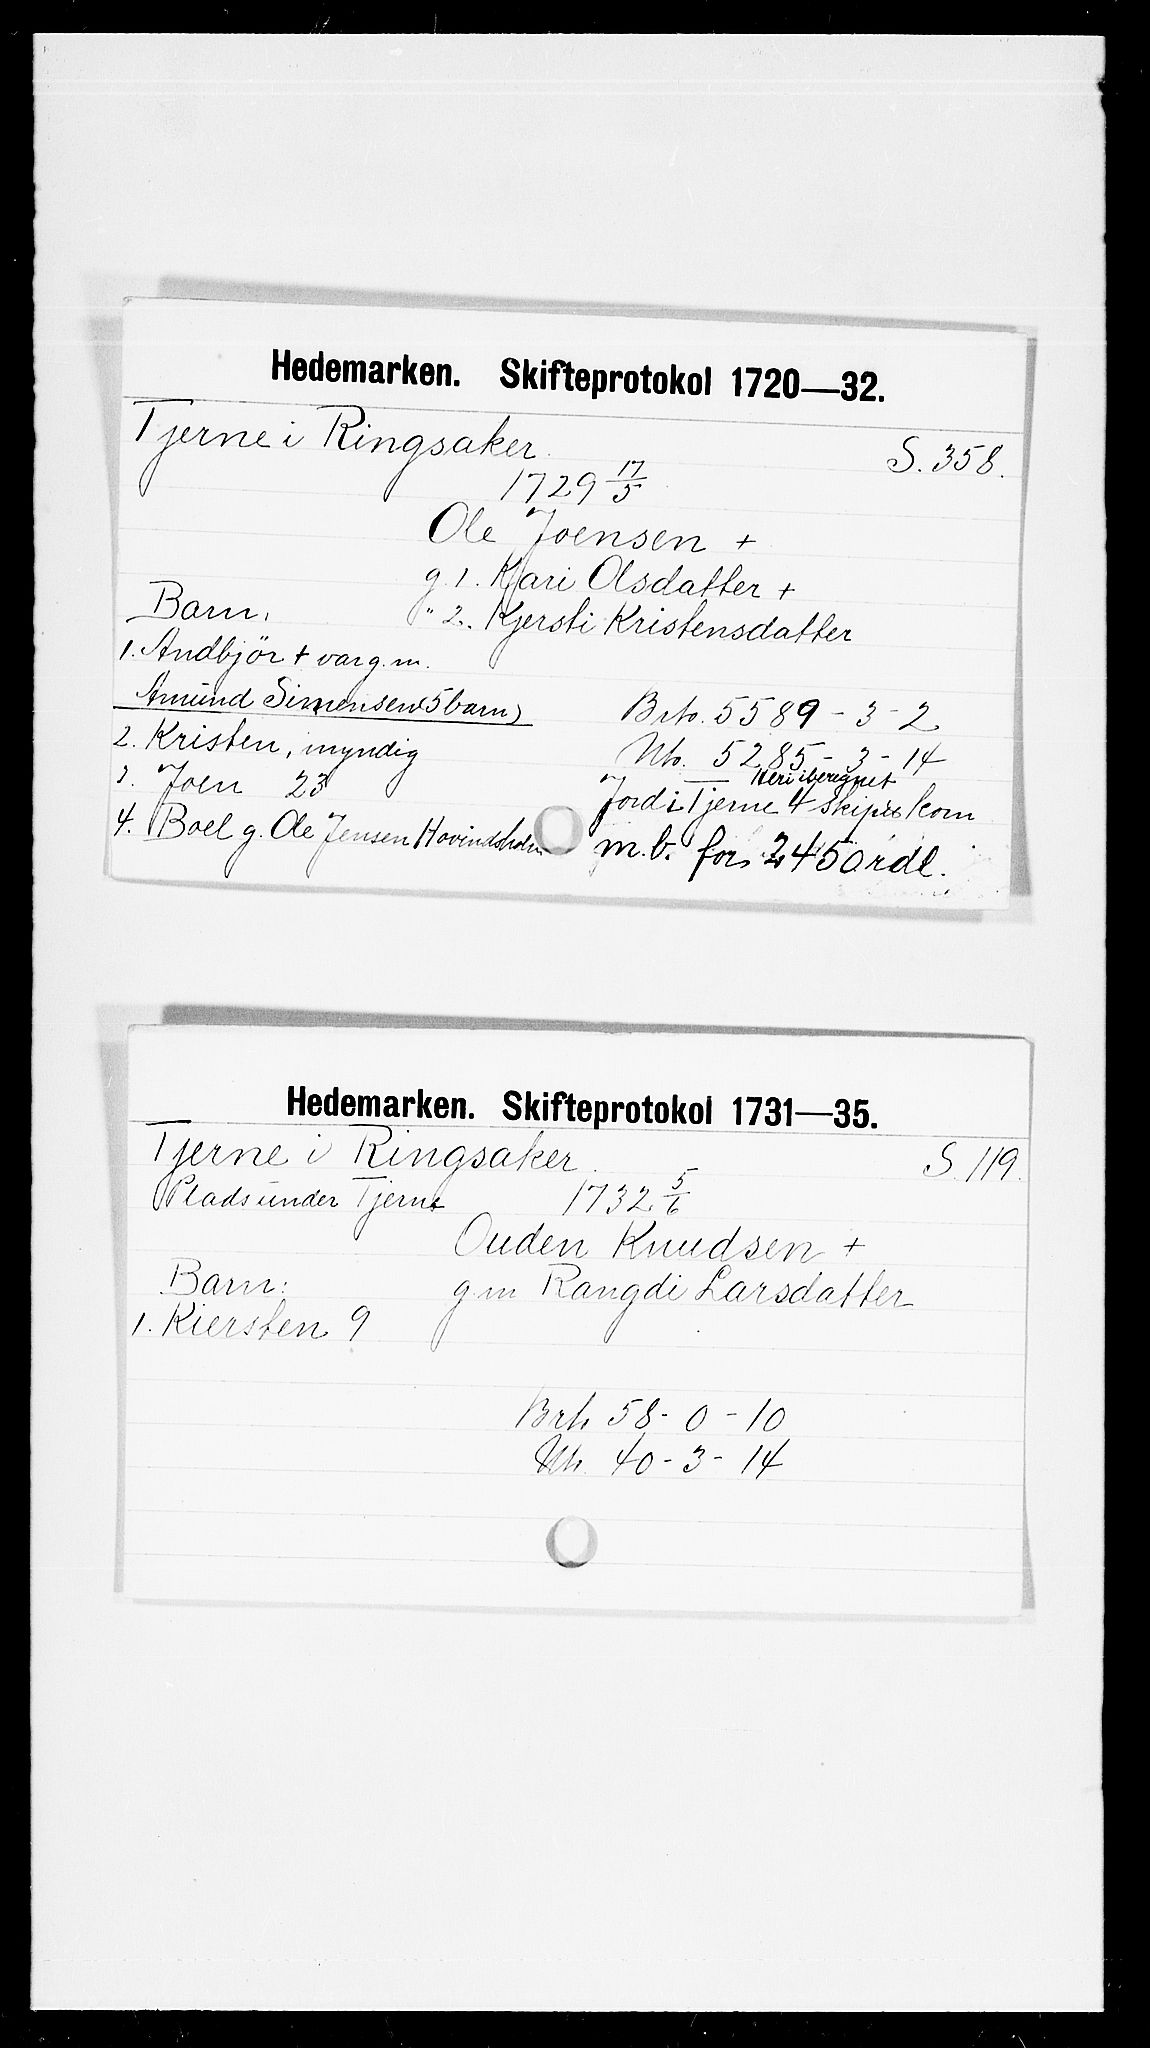 Hedemarken. Skifteprotokol 1720—32.
Tjerne i Ringsaker. S. 358.
1729 17/5
Ole Joensen +
g. 1. Kari Olsdatter +
Barn: " 2. Kjersti Kristensdatter
1. Andbjör + var g. m.
Amund Simensen (5 barn) Brto. 5589 - 3 - 2
2. Kristen, myndig Nto. 5285 - 3 - 14
Heri iberegnet
3. Joen 23 Jord i Tjerne 4 skipd korn
4. Boel g. Ole Jensen Hovindsholm m. b. for 2450 rdl.
Hedemarken. Skifteprotokol 1731—35.
Tjerne i Ringsaker. S. 119.
Plads under Tjerne 1732 5/6
Ouden Knudsen +
Barn: g. m Rangdi Larsdatter
1. Kiersten 9
Brto 58 - 0 - 10
Nto. 40 - 3 - 14